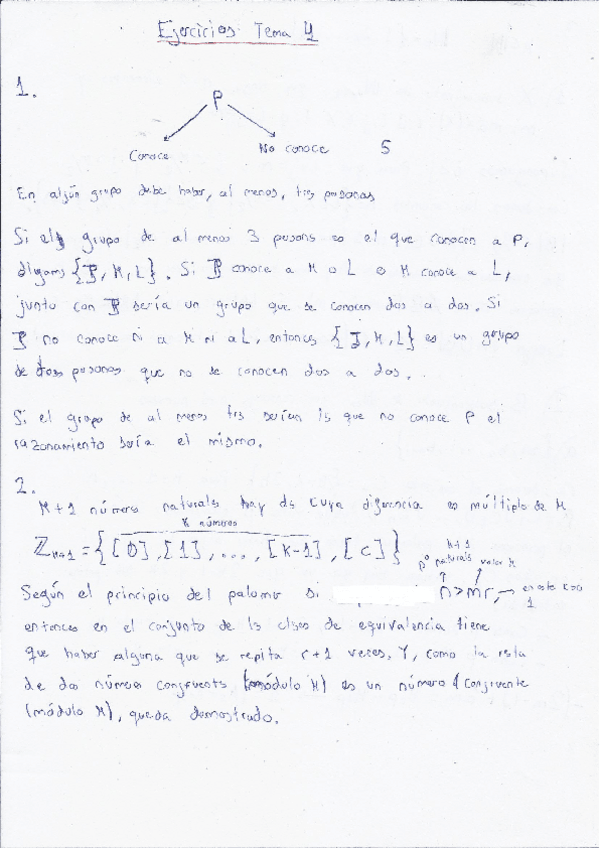 Ejercicios Tema 4
1.
P
Conoce No conoce 5
En algún grupo debe haber, al menos, tres personas
Si el grupo de al menos 3 persons es el que conocen a P,
digams {J, M, L}. Si J conoce a M o L o M conoce a L,
junto con P sería un grupo que se conocen dos a dos. Si
J no conoce ni a M ni a L, entonces {J, M, L} es un grupo
de tres personas que no se conocen dos a dos.
Si el grupo de al menos tres serían ls que no conoce P el
razonamiento sería el mismo.
2.
K+1 números naturales hay ds cuya diferencia es múltiplo de K
K números
ℤK+1 = {[0], [1], ..., [K-1], [C]}
K+1
nº naturals valor K
Según el principio del palomar si n>mr, → en este caso
1
entonces en el conjunto de ls clses de equivalencia tiene
que haber alguna que se repita r+1 veces. Y, como la resta
de dos números congruents (módulo K) es un número congruente
(módulo K), queda demostrado.